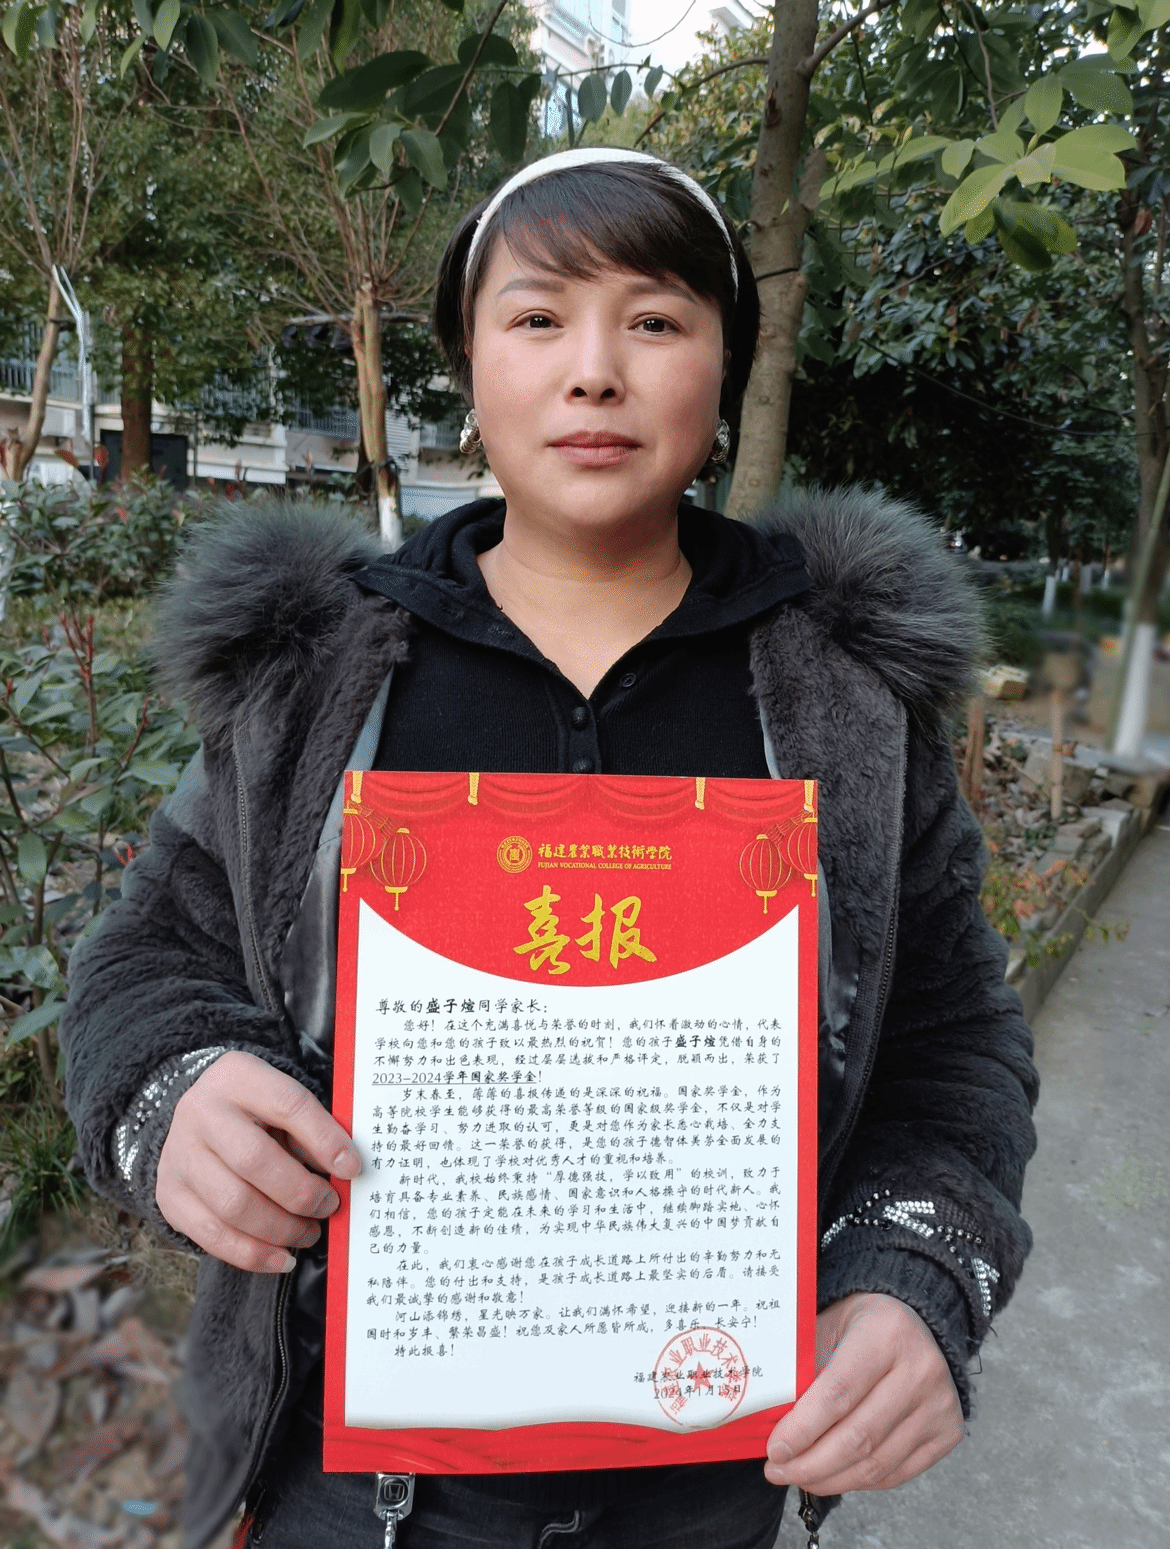 福建农业职业技術学院
FUJIAN VOCATIONAL COLLEGE OF AGRICULTURE
喜报
尊敬的盛子煊同学家长：
您好！在这个充满喜悦与荣誉的时刻，我们怀着激动的心情，代表
学校向您和您的孩子致以最热烈的祝贺！您的孩子盛子煊凭借自身的
不懈努力和出色表现，经过层层选拔和严格评定，脱颖而出，荣获了
2023-2024学年国家奖学金！
岁末春至，薄薄的喜报传递的是深深的祝福。国家奖学金，作为
高等院校学生能够获得的最高荣誉等级的国家级奖学金，不仅是对学
生勤奋学习、努力进取的认可，更是对您作为家长悉心栽培、全力支
持的最好回情。这一荣誉的获得，是您的孩子德智体美劳全面发展的
有力证明，也体现了学校对优秀人才的重视和培养。
新时代，我校始终秉持“厚德强技，学以致用”的校训，致力于
培育具备专业素养、民族感情、国家意识和人格操守的时代新人。我
们相信，您的孩子定能在未来的学习和生活中，继续脚踏实地、心怀
感恩，不断创造新的佳绩，为实现中华民族伟大复兴的中国梦贡献自
己的力量。
在此，我们衷心感谢您在孩子成长道路上所付出的辛勤努力和无
私陪伴。您的付出和支持，是孩子成长道路上最坚实的后盾。请接受
我们最诚挚的感谢和敬意！
河山添锦绣，星光映万家。让我们满怀希望，迎接新的一年。祝祖
国时和岁丰、繁荣昌盛！祝您及家人所愿皆所成，多喜乐、长安宁！
特此报喜！
福建农业职业技术学院